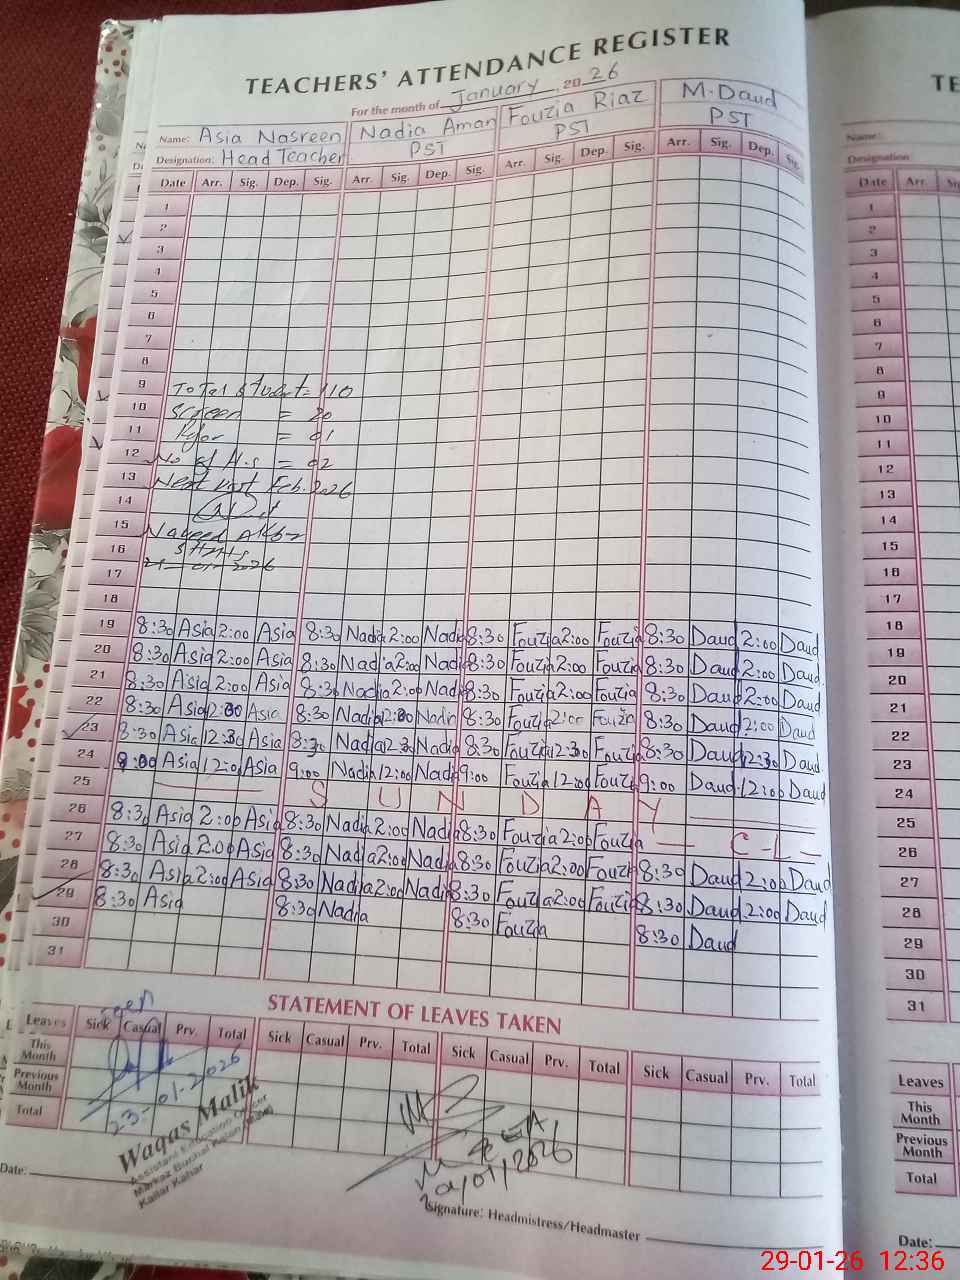 TEACHERS' ATTENDANCE REGISTER
For the month of January, 2026
Name: Asia Nasreen Nadia Aman Fouzia Riaz M. Daud
Designation: Head Teacher PST PST PST
Date Arr. Sig. Dep. Sig. Arr. Sig. Dep. Sig. Arr. Sig. Dep. Sig. Arr. Sig. Dep. Sig.
1
2
3
4
5
6
7
8
9 Total student = 110
10 Screen = 20
11 = 01
12 No of H.S = 02
13 Next visit Feb. 2026
14
15 Naveed
16
17 01 2026
18
19 8:30 Asia 2:00 Asia 8:30 Nadia 2:00 Nadia 8:30 Fouzia 2:00 Fouzia 8:30 Daud 2:00 Daud
20 8:30 Asia 2:00 Asia 8:30 Nadia 2:00 Nadia 8:30 Fouzia 2:00 Fouzia 8:30 Daud 2:00 Daud
21 8:30 Asia 2:00 Asia 8:30 Nadia 2:00 Nadia 8:30 Fouzia 2:00 Fouzia 8:30 Daud 2:00 Daud
22 8:30 Asia 2:00 Asia 8:30 Nadia 2:00 Nadia 8:30 Fouzia 2:00 Fouzia 8:30 Daud 2:00 Daud
23 8:30 Asia 12:30 Asia 8:30 Nadia 12:30 Nadia 8:30 Fouzia 12:30 Fouzia 8:30 Daud 12:30 Daud
24 9:00 Asia 12:00 Asia 9:00 Nadia 12:00 Nadia 9:00 Fouzia 12:00 Fouzia 9:00 Daud 12:00 Daud
25 S U N D A Y
26 8:30 Asia 2:00 Asia 8:30 Nadia 2:00 Nadia 8:30 Fouzia 2:00 Fouzia — C-L-
27 8:30 Asia 2:00 Asia 8:30 Nadia 2:00 Nadia 8:30 Fouzia 2:00 Fouzia 8:30 Daud 2:00 Daud
28 8:30 Asia 2:00 Asia 8:30 Nadia 2:00 Nadia 8:30 Fouzia 2:00 Fouzia 8:30 Daud 2:00 Daud
29 8:30 Asia 8:30 Nadia 8:30 Fouzia 8:30 Daud
30
31
STATEMENT OF LEAVES TAKEN
Leaves Sick Casual Prv. Total Sick Casual Prv. Total Sick Casual Prv. Total Sick Casual Prv. Total
This Month
Previous Month
Total
23-01-2026
Waqas Malik
Assistant Education Officer
Markaz Buchal Kalan
Kallar Kahar
AEA
/01/2026
Date:
Signature: Headmistress/Headmaster
TE
Name:
Designation
Date Arr.
1
2
3
4
5
6
7
8
9
10
11
12
13
14
15
16
17
18
19
20
21
22
23
24
25
26
27
28
29
30
31
Leaves
This Month
Previous Month
Total
Date:
29-01-26 12:36